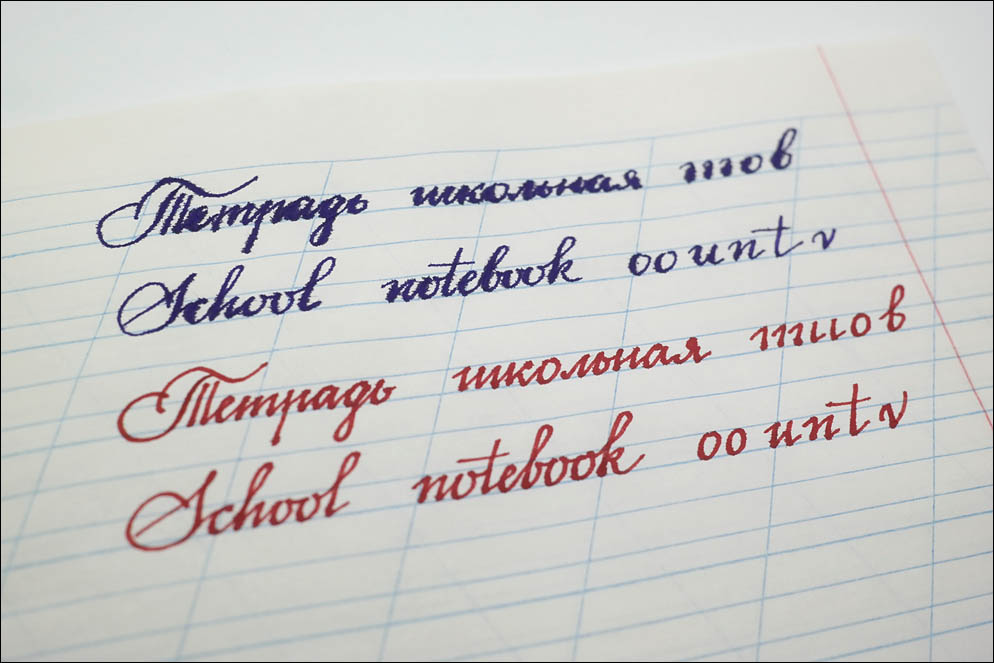 Тетрадь школьная тов
School notebook oo unt v
Тетрадь школьная тиов
School notebook oo unt v